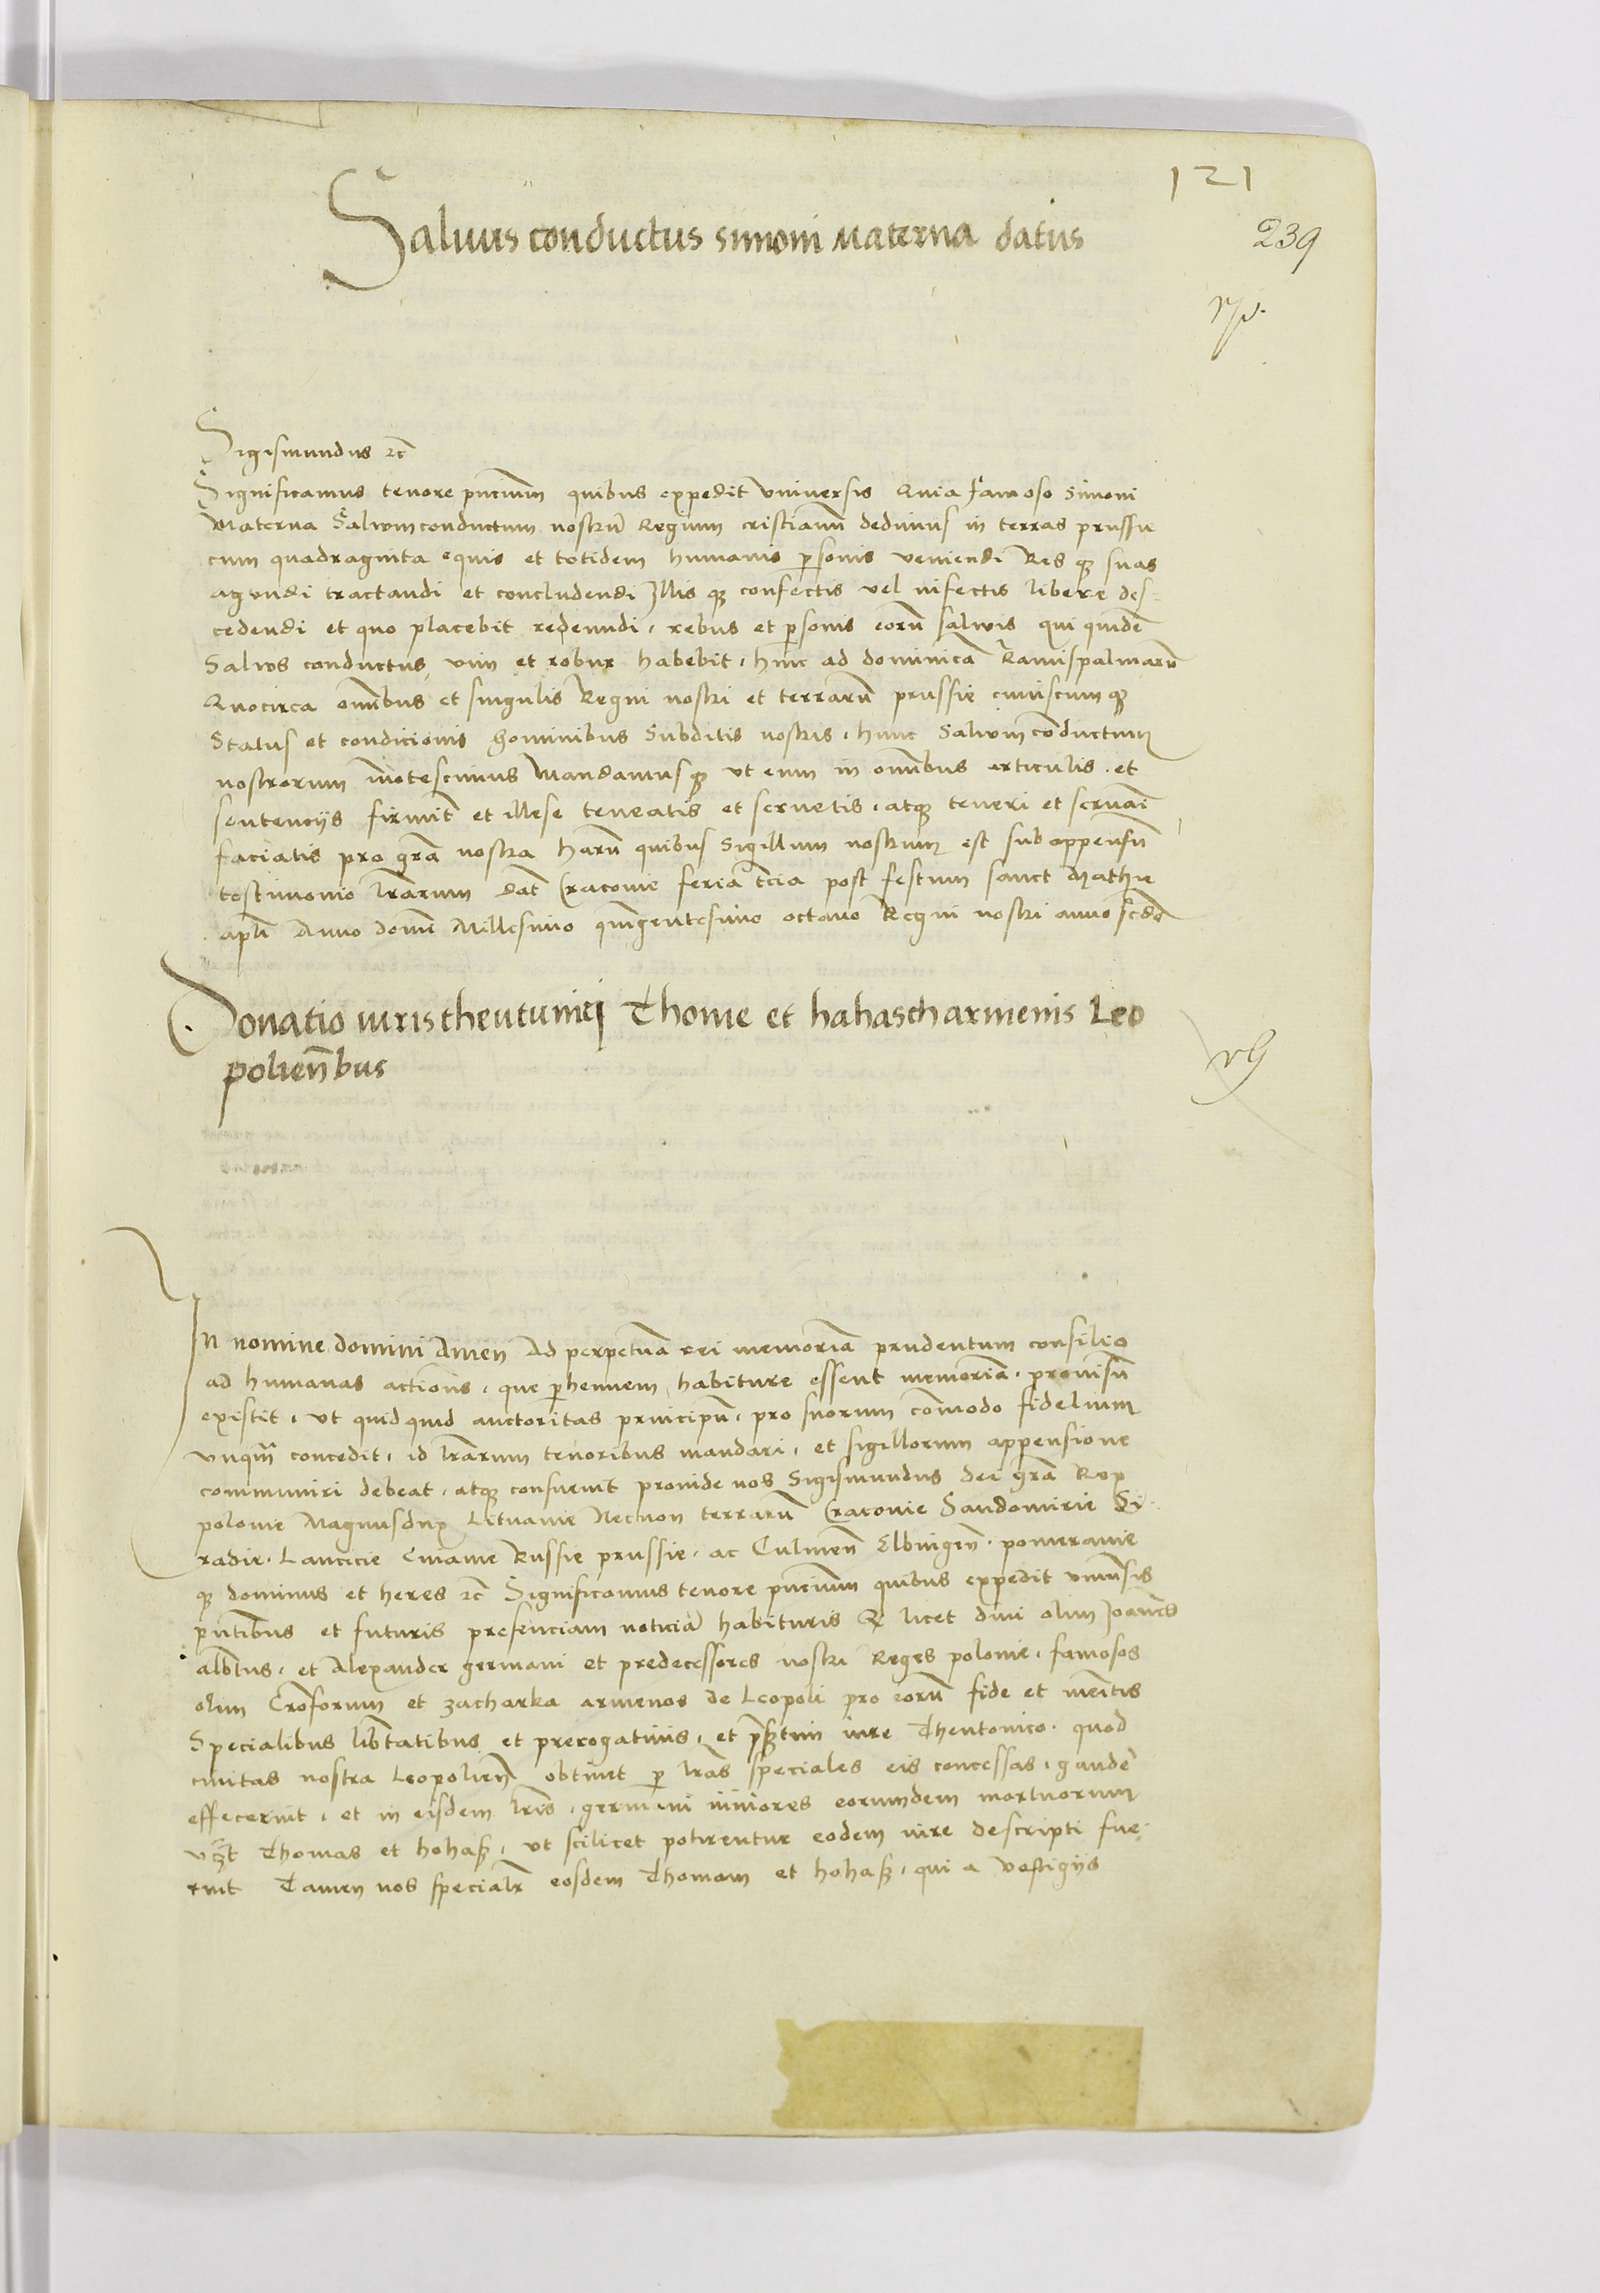 121
239
Salvus conductus simoni Materna datus
Sigismundus etc̄
Significamus tenore pn̄cium quibus expedit vniversis Quia famoso Simoni
Materna Saluumconductum nostrū Regium cristianū dedimus in terras prussie
cum quadraginta equis et totidem humanis personis veniendi Res qꝫ suas
agendi tractandi et concludendi Illis qꝫ confectis vel infectis libere des-
cedendi et quo placebit redeundi, rebus et personis eorū saluis qui quidē
Saluus conductus, vim et robur habebit, hinc ad dominicā Ramispalmarū
Quocirca om̄ibus et singulis Regni nostri et terrarū prussie cuiuscumqꝫ
Status et condicionis hominibus Subditis nostris, hunc Saluumcōductum
nostrorum īnotescimus Mandamusqꝫ vt eum in om̄ibus articulis, et
sentencijs firmit̄ et illese teneatis et seruetis, atqꝫ teneri et seruari
faciatis pro gr̄a nostra harū quibus Sigillum nostrum est subappensū
testimonio lr̄arum Dat̄ Cracouie feria t̄cia post festum sanct Mathie
apl̄i Anno domi̅ Millesimo quīgentesimo octauo Regni nostri anno scd̄o
Donatio iuris theutunici Thome et hahasch armenis Leo
polien̄bus
In nomine domini Amen Ad perpetuā rei memoriā prudentum consilio
ad humanas actiones, que perhennem, habiture essent memoriā, prouisū
existit, vt quidquid auctoritas principū, pro suorum cōmodo fidelium
vnqm̄ concedit, id lr̄arum tenoribus mandari, et sigillorum appensione
communiri debeat, atqꝫ consueuit proinde nos Sigismundus dei gr̄a Rex
polonie Magnusdux Lituanie Necnon terrarū Cracouie Sandomirie Si-
radie, Lancicie Cuiauie Russie prussie, ac Culmen̄ Elbingen̄, pomeranie
qꝫ dominus et heres etc̄ Significamus tenore pn̄cium quibus expedit vniu̅sis
pn̄tibus et futuris presenciam noticiā habituris Q̄ licet diui olim Joan̄es
alb̄tus, et Alexander germani et predecessores nostri Reges polonie, famosos
olim Cr̄oforum et zacharka armenos de Leopoli pro eorū fide et meritis
Specialibus lib̄tatibus et prerogatiuis, et pr̄sertim iure Theutonico, quod
ciuitas nostra Leopolien̄ obtinet per lr̄as speciales eis concessas, gaudē
effecerint, et in eisdem lr̄is, germani iuniores eorumdem mortuorum
vꝫt Thomas et hohaß, vt scilicet potirentur eodem iure descripti fue-
rint Tamen nos specialr̄ eosdem Thomam et hohaß, qui a vestigijs